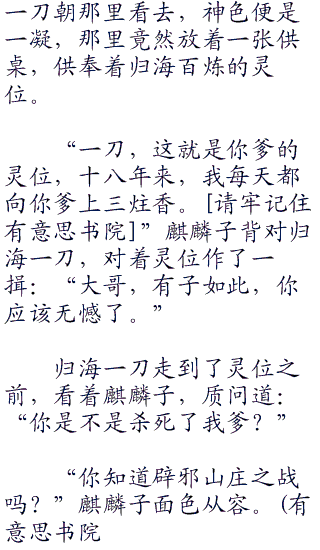 一刀朝那里看去，神色便是
一凝，那里竟然放着一张供
桌，供奉着归海百炼的灵
位。
“一刀，这就是你爹的
灵位，十八年来，我每天都
向你爹上三炷香。[请牢记住
有意思书院]”麒麟子背对归
海一刀，对着灵位作了一
揖：“大哥，有子如此，你
应该无憾了。”
归海一刀走到了灵位之
前，看着麒麟子，质问道：
“你是不是杀死了我爹？”
“你知道辟邪山庄之战
吗？”麒麟子面色从容。(有
意思书院